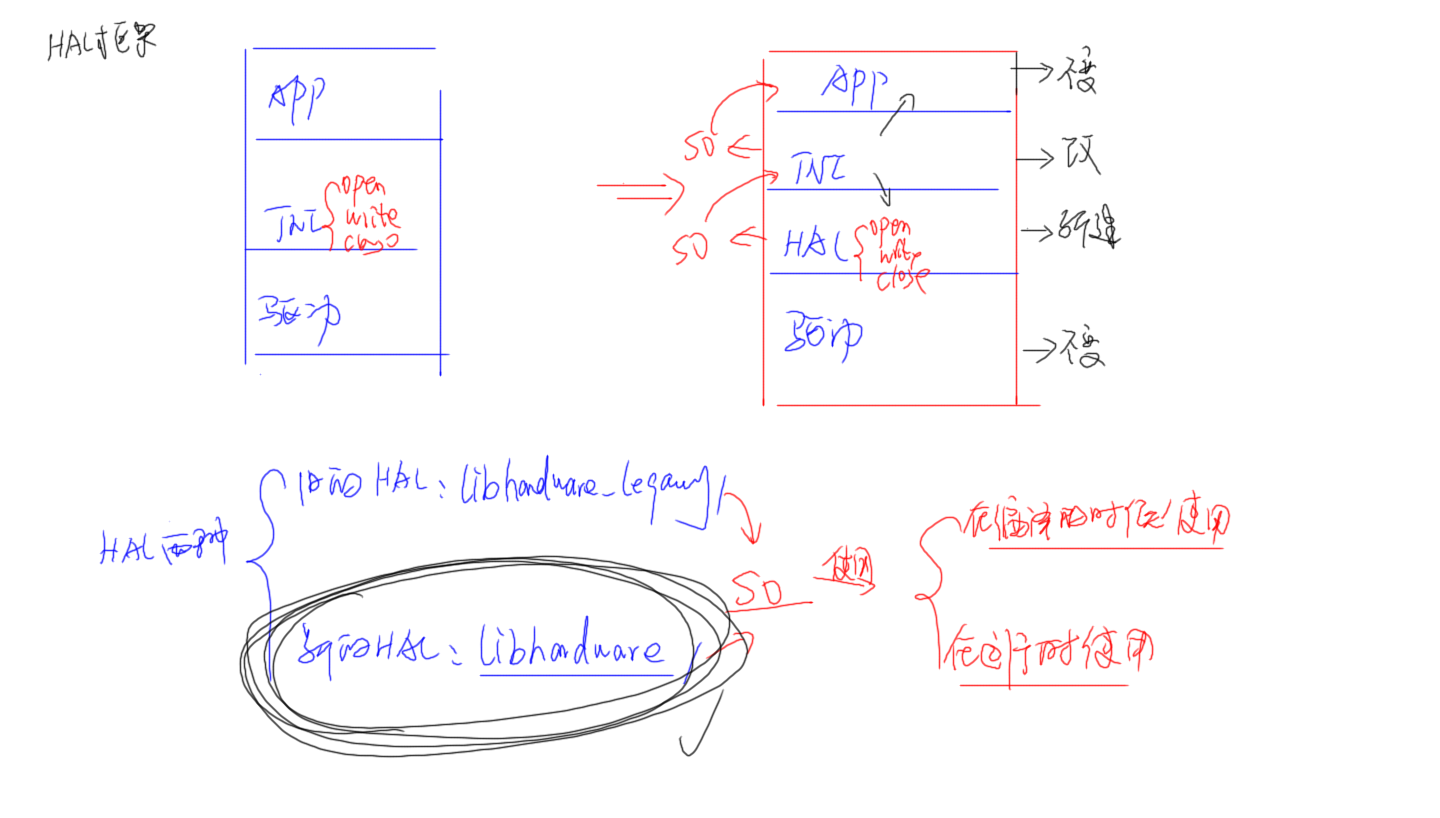 HAL框架
APP
JNI
open
write
close
驱动
APP
JNI
HAL
open
write
close
驱动
SO
SO
不变
改
新建
不变
HAL两种
旧的HAL:libhardware_legacy
新的HAL:libhardware
SO
使用
在编译的时候使用
在运行时使用